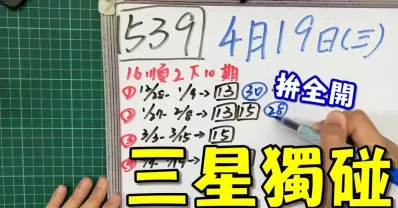 539 4月19日(三)
16順2下10期
① 12/28- 1/9→ 13 30
② 1/27- 2/8→ 13 15 28
③ 3/3- 3/15→ 15
拚全開
三星獨碰